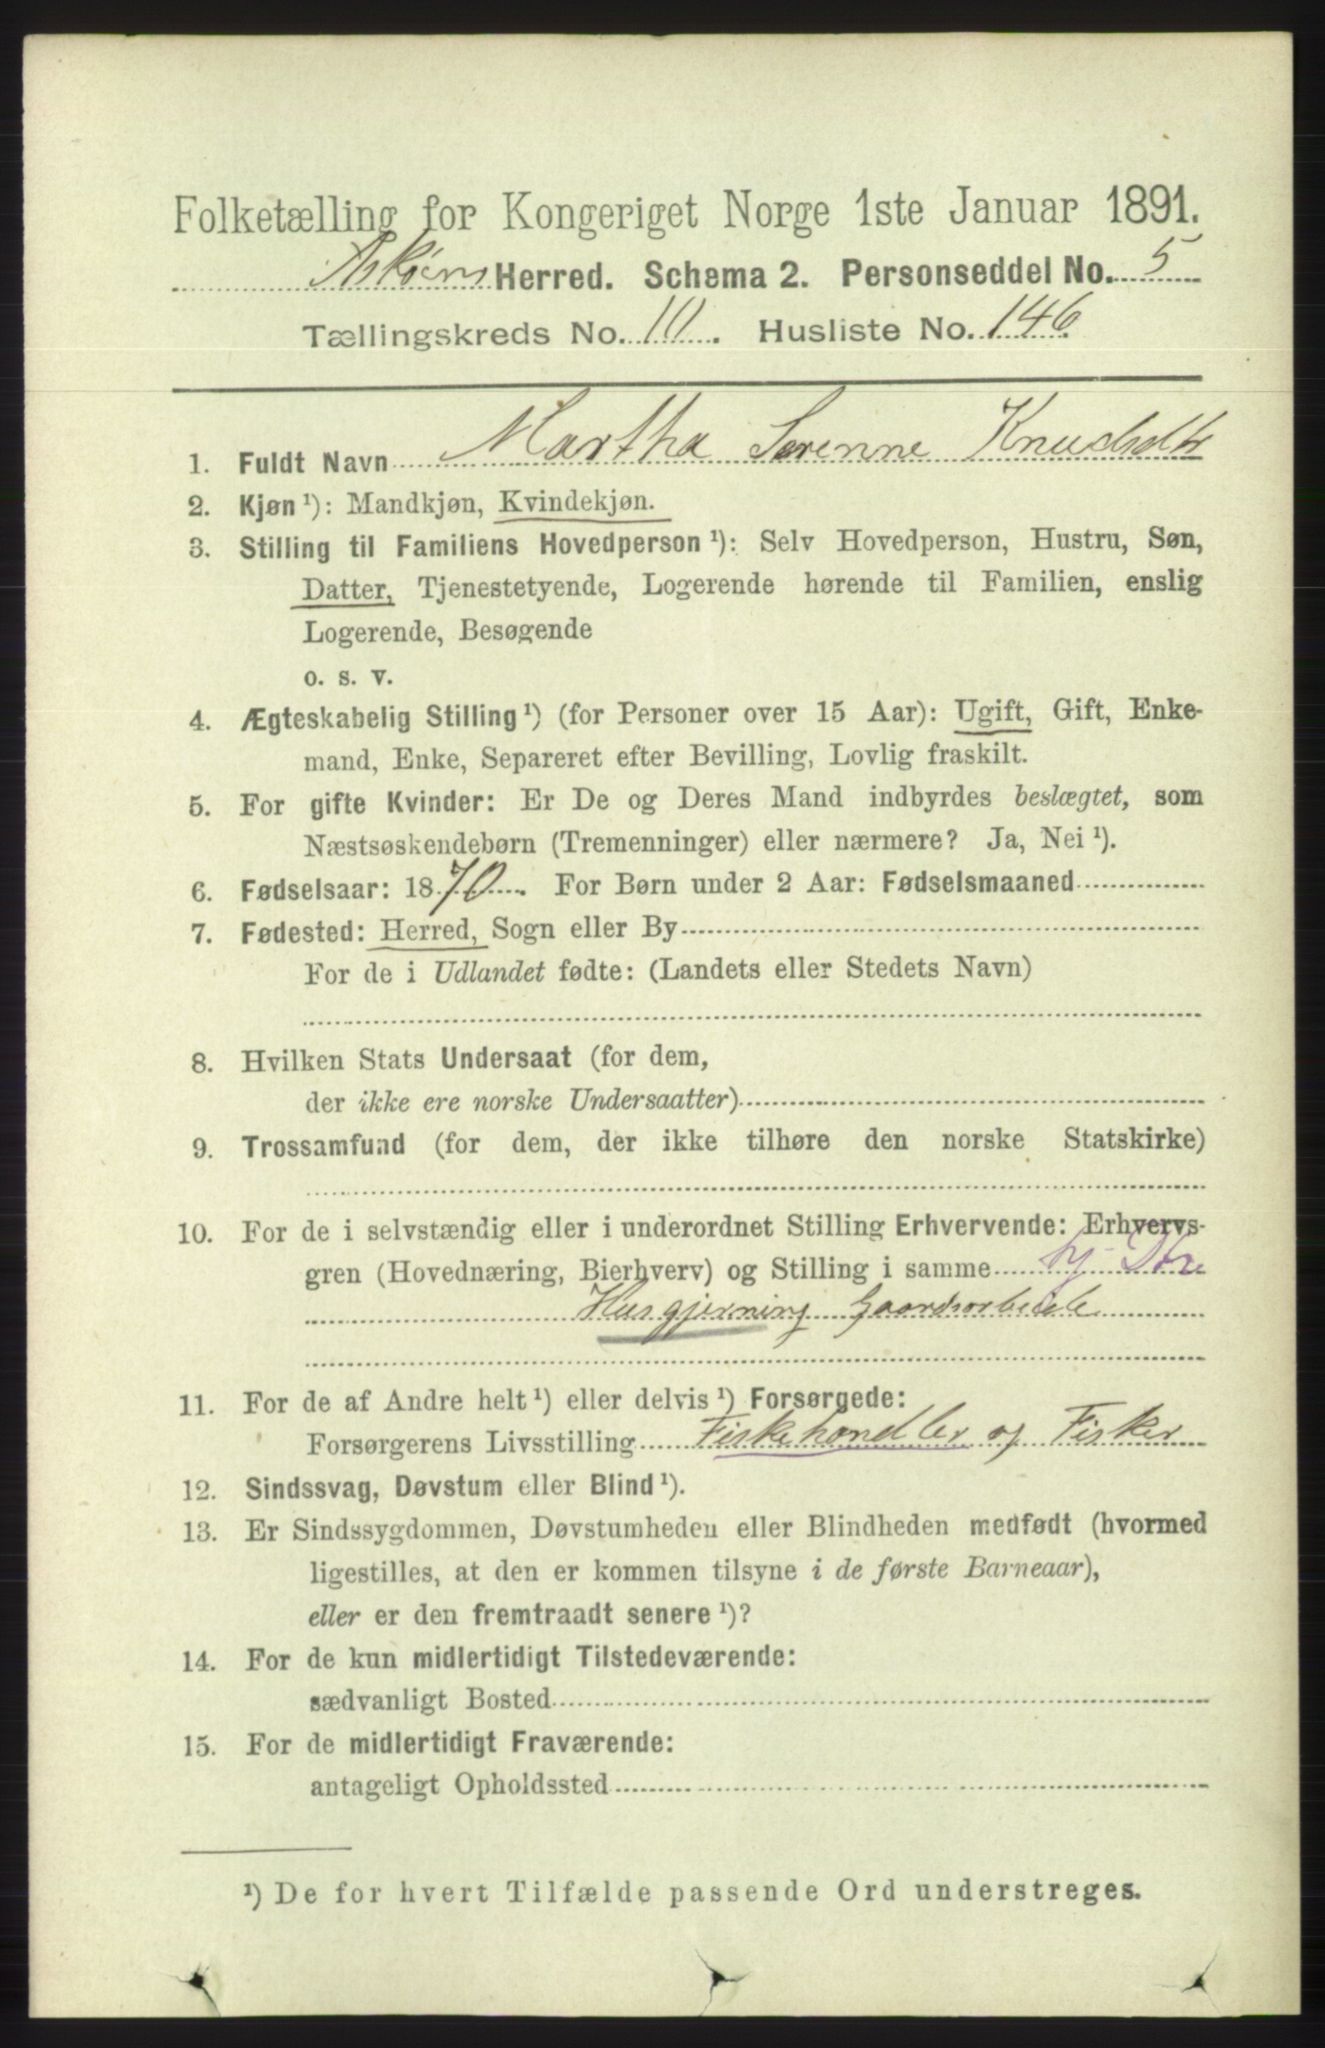 Folketælling for Kongeriget Norge 1ste Januar 1891.
Askøens Herred. Schema 2. Personseddel No. 5
Tællingskreds No. 10. Husliste No. 146
1. Fuldt Navn Martha Serenne
2. Kjøn ¹): Mandkjøn, Kvindekjøn.
3. Stilling til Familiens Hovedperson ¹): Selv Hovedperson, Hustru, Søn,
Datter, Tjenestetyende, Logerende hørende til Familien, enslig
Logerende, Besøgende
o. s. v.
4. Ægteskabelig Stilling ¹) (for Personer over 15 Aar): Ugift, Gift, Enke-
mand, Enke, Separeret efter Bevilling, Lovlig fraskilt.
5. For gifte Kvinder: Er De og Deres Mand indbyrdes beslægtet, som
Næstsøskendebørn (Tremenninger) eller nærmere? Ja, Nei ¹).
6. Fødselsaar: 1870. For Børn under 2 Aar: Fødselsmaaned
7. Fødested: Herred, Sogn eller By
For de i Udlandet fødte: (Landets eller Stedets Navn)
8. Hvilken Stats Undersaat (for dem,
der ikke ere norske Undersaatter)
9. Trossamfund (for dem, der ikke tilhøre den norske Statskirke)
10. For de i selvstændig eller i underordnet Stilling Erhvervende: Erhvervs-
gren (Hovednæring, Bierhverv) og Stilling i samme
Husgjerning Gaardsarbeide
11. For de af Andre helt ¹) eller delvis ¹) Forsørgede:
Forsørgerens Livsstilling Fiskehandler og Fisker
12. Sindssvag, Døvstum eller Blind ¹).
13. Er Sindssygdommen, Døvstumheden eller Blindheden medfødt (hvormed
ligestilles, at den er kommen tilsyne i de første Barneaar),
eller er den fremtraadt senere ¹)?
14. For de kun midlertidigt Tilstedeværende:
sædvanligt Bosted
15. For de midlertidigt Fraværende:
antageligt Opholdssted
¹) De for hvert Tilfælde passende Ord understreges.